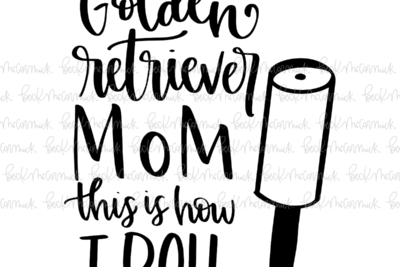 Golden
retriever
MOM
this is how
I ROLL